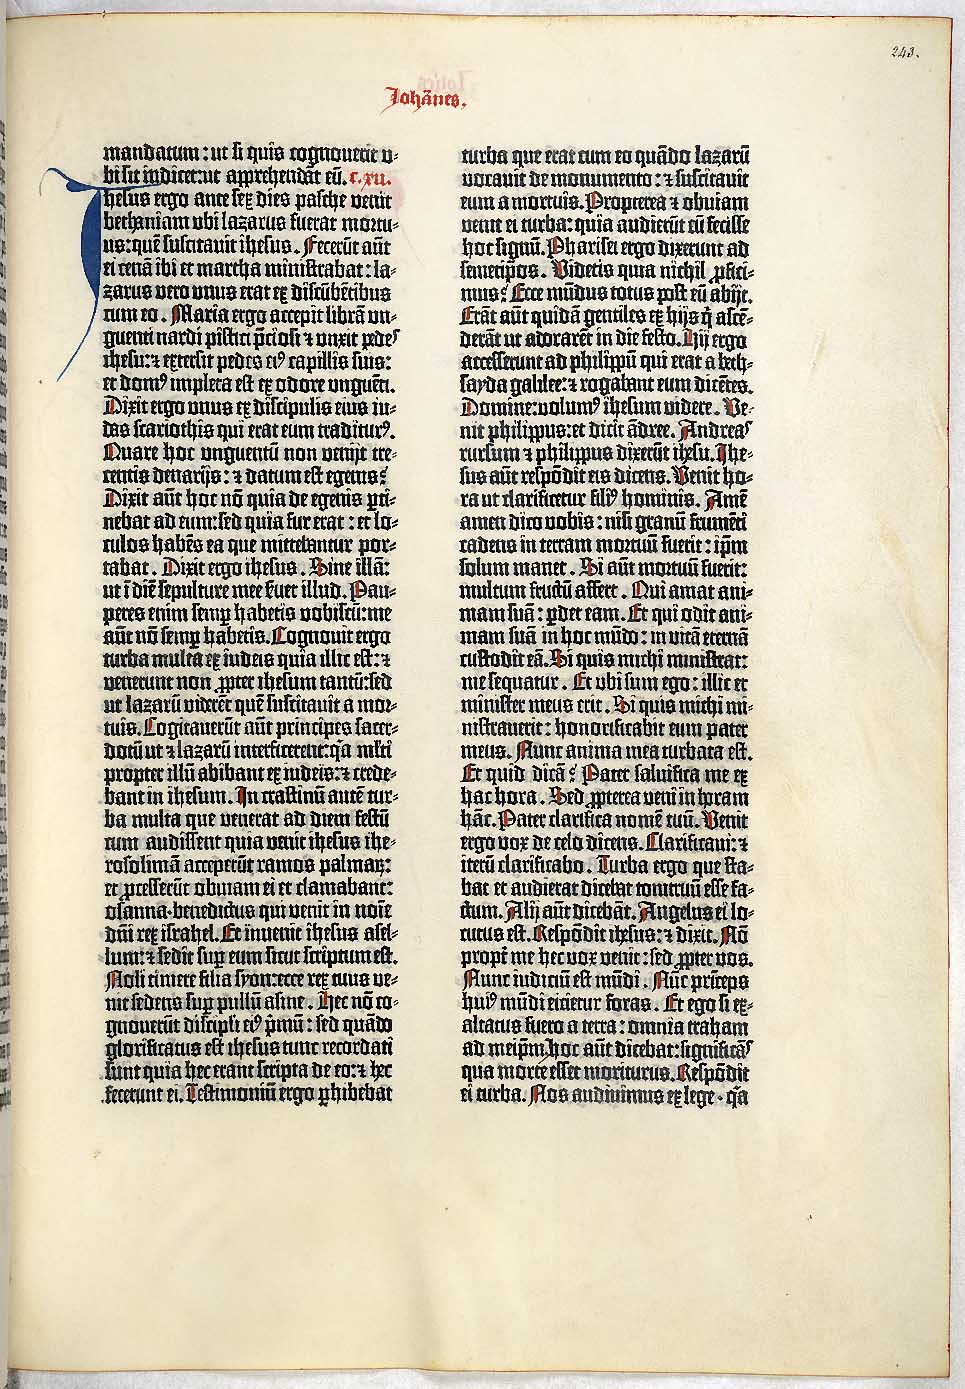 243.
Johānes.
mandatum: ut si quis cognouerit v-
bi sit indicet: ut apprehendāt eū. c. xii.
Ihesus ergo ante sex dies pasche venit
bethaniam vbi lazarus fuerat mortu-
us: quē suscitauit ihesus. Fecerūt aūt
ei cenā ibi et martha ministrabat: la-
zarus vero vnus erat ex discūbētibus
cum eo. Maria ergo accepit librā vn-
guenti nardi pistici p̄ciosi ⁊ vnxit pedeˢ
ihesu: ⁊ extersit pedes eiꝰ capillis suis:
et domꝰ impleta est ex odore vnguēti.
Dixit ergo vnus ex discipulis eius iu-
das scariothis qui erat eum traditurꝰ.
Quare hoc vnguentū non venijt tre-
centis denarijs: ⁊ datum est egenis?
Dixit aūt hoc nō quia de egenis ꝑti-
nebat ad eum: sed quia fur erat: et lo-
culos habēs ea que mittebantur por-
tabat. Dixit ergo ihesus. Sine illā:
ut ī diē sepulture mee ẜuet illud. Pau-
peres enim semꝑ habetis vobiscū: me
aūt nō semꝑ habetis. Cognouit ergo
turba multa ex iudeis quia illic est: ⁊
venerunt non ꝓpter ihesum tantū: sed
ut lazarū viderēt quē suscitauit a mor-
tuis. Cogitauerūt aūt principes sacer-
dotū ut ⁊ lazarū interficerent: q̄a ml̄ti
propter illū abibant ex iudeis: ⁊ crede-
bant in ihesum. In crastinū autē tur-
ba multa que venerat ad diem festū
cum audissent quia venit ihesus ihe-
rosolimā acceperūt ramos palmaꝝ:
et ꝓcesserūt obuiam ei et clamabant:
osanna · benedictus qui venit in noīe
dn̄i rex israhel. Et inuenit ihesus asel-
lum: ⁊ sedit suꝑ eum sicut scriptum est.
Noli timere filia syon: ecce rex tuus ve-
nit sedens suꝑ pullū asine. Hec nō co-
gnouerūt discipli eiꝰ p̄mū: sed quādo
glorificatus est ihesus tunc recordati
sunt quia hec erant scripta de eo: ⁊ hec
fecerunt ei. Testimoniū ergo ꝑhibebat
turba que erat cum eo quādo lazarū
vocauit de monumento: ⁊ suscitauit
eum a mortuis. Propterea ⁊ obuiam
venit ei turba: quia audierūt eū fecisse
hoc signū. Pharisei ergo dixerunt ad
semetip̄os. Videtis quia nichil ꝓfici-
mus? Ecce mūdus totus post eū abijt.
Erāt aūt quidā gentiles ex hijs q̄ ascē-
derāt ut adorarēt in die festo. Hij ergo
accesserunt ad philippū qui erat a beth-
sayda galilee: ⁊ rogabant eum dicētes.
Domine: volumꝰ ihesum videre. Ve-
nit philippus: et dicit ādree. Andreaˢ
rursum ⁊ philippus dixerūt ihesu. Ihe-
sus aūt respōdit eis dicens. Venit ho-
ra ut clarificetur filiꝰ hominis. Amē
amen dico vobis: nisi granū frumēti
cadens in terram mortuū fuerit: ip̄m
solum manet. Si aūt mortuū fuerit:
multum fructū affert. Qui amat ani-
mam suā: ꝑdet eam. Et qui odit ani-
mam suā in hoc mūdo: in vitā eternā
custodit eā. Si quis michi ministrat:
me sequatur. Et vbi sum ego: illic et
minister meus erit. Si quis michi mi-
nistrauerit: honorificabit eum pater
meus. Nunc anima mea turbata est.
Et quid dicā? Pater saluifica me ex
hac hora. Sed ꝓpterea veni in horam
hāc. Pater clarifica nomē tuū. Venit
ergo vox de celo dicens. Clarificaui: ⁊
iterū clarificabo. Turba ergo que sta-
bat et audierat dicebat tonitruū esse fa-
ctum. Alij aūt dicebāt. Angelus ei lo-
cutus est. Respōdit ihesus: ⁊ dixit. Nō
propt̄ me hec vox venit: sed ꝓpter vos.
Nunc iudiciū est mūdi. Nūc prīceps
huiꝰ mūdi eicietur foras. Et ego si ex-
altatus fuero a terra: omnia traham
ad meip̄m. hoc aūt dicebat: significāˢ
qua morte esset moriturus. Respōdit
ei turba. Nos audiuimus ex lege · q̄a